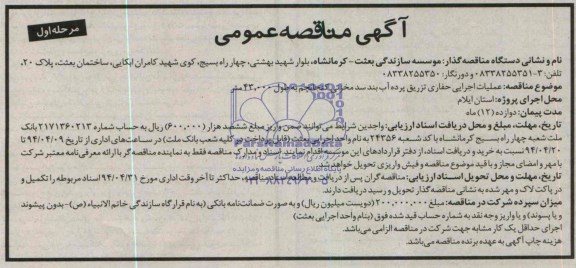 آگهی مناقصه عمومی
مرحله اول
نام و نشانی دستگاه مناقصه‌گذار: موسسه سازندگی بعثت - کرمانشاه، بلوار شهید بهشتی، چهار راه بسیج، کوی شهید کامران ابکایی، ساختمان بعثت، پلاک ۲۰،
تلفن: ۳-۰۸۳۳۸۲۵۵۳۵۱ و دورنگار: ۰۸۳۳۸۲۵۵۳۵۰
موضوع مناقصه: عملیات اجرایی حفاری تزریق پرده آب بند سد مخزنی به طول ۴۳،۰۰۰ متر
محل اجرای پروژه: استان ایلام
مدت پیمان: دوازده (۱۲) ماه
تاریخ، مهلت، مبلغ و محل دریافت اسناد ارزیابی: واجدین شرایط می توانند ضمن واریز مبلغ ششصد هزار (۶۰۰،۰۰۰) ریال به حساب شماره ۲۱۷۱۳۶۰۲۱۳ بانک
ملت شعبه چهار راه بسیج کرمانشاه با کد شعبه ۲۴۳۵۶ به نام واحد اجرایی بعثت (قابل پرداخت در کلیه شعب بانک ملت) در ساعت‌های اداری از تاریخ ۹۴/۰۴/۰۹ تا
۹۴/۰۴/۲۰ نسبت به خرید و دریافت اسناد، از دفتر قراردادهای این موسسه اقدام نمایند. اسناد و مدارک مناقصه فقط به نماینده مناقصه گر با ارائه معرفی‌نامه معتبر شرکت
با مهر و امضای مجاز و با قید موضوع مناقصه و فیش واریزی تحویل خواهد شد.
تاریخ، مهلت و محل تحویل اسناد ارزیابی: مناقصه‌گران پس از دریافت و مطالعه اسناد مناقصه، حداکثر تا آخر وقت اداری مورخ ۹۴/۰۴/۳۱ اسناد مربوطه را تکمیل و
در پاکت لاک و مهر شده به نشانی مناقصه‌گذار تحویل و رسید دریافت دارند.
میزان سپرده شرکت در مناقصه: مبلغ ۲۰۰،۰۰۰،۰۰۰ (دویست میلیون ریال) و به صورت ضمانت‌نامه بانکی (به نام قرارگاه سازندگی خاتم الانبیاء (ص)- بدون پیشوند
و یا پسوند) و یا واریز وجه نقد به شماره حساب قید شده فوق (بنام واحد اجرایی بعثت)
اجرای حداقل یک کار مشابه جهت شرکت در مناقصه الزامی می‌باشد.
هزینه چاپ آگهی به عهده برنده مناقصه می‌باشد.